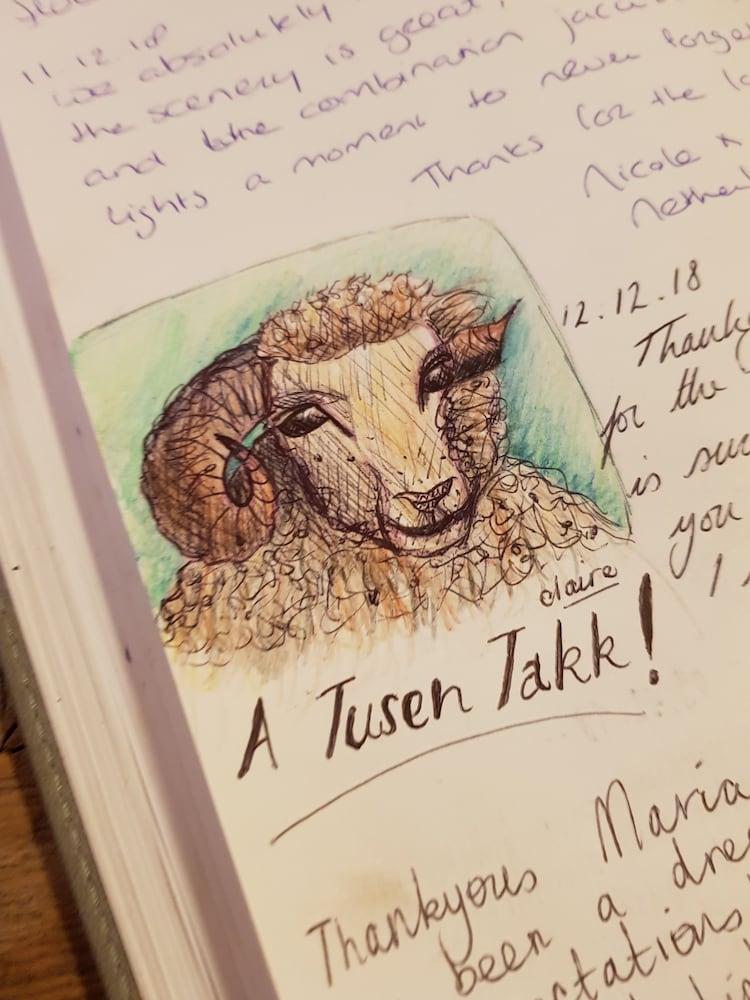 11.12.18
we absolutely
the scenery is great,
and the combination
lights a moment to never forge
Thanks for the
Nicole x
12.12.18
Thank
for the
is
you
I
claire
A Tusen Takk!
Thankyous Maria
been a dre